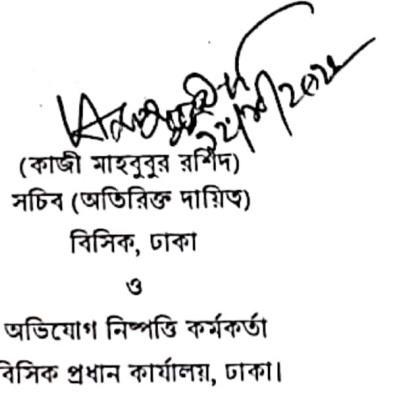 (কাজী মাহবুবুর রশিদ)
সচিব (অতিরিক্ত দায়িত্ব)
বিসিক, ঢাকা
ও
অভিযোগ নিষ্পত্তি কর্মকর্তা
বিসিক প্রধান কার্যালয়, ঢাকা।